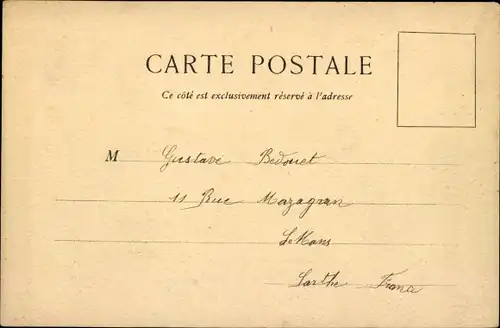 CARTE POSTALE
Ce côté est exclusivement réservé à l'adresse
M Gustave Bedouet
11 Rue Mazagran
Le Mans
Sarthe France